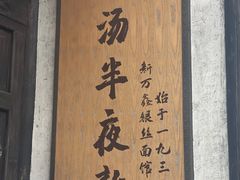 汤半夜歌
始于一九三
新万鑫银丝面馆